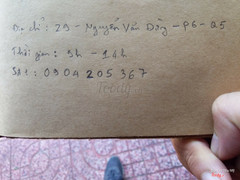 Địa chỉ : 29 - Nguyễn Văn Đừng - P6 - Q5
Thời gian : 9h - 14h
Sđt : 0904 205 367